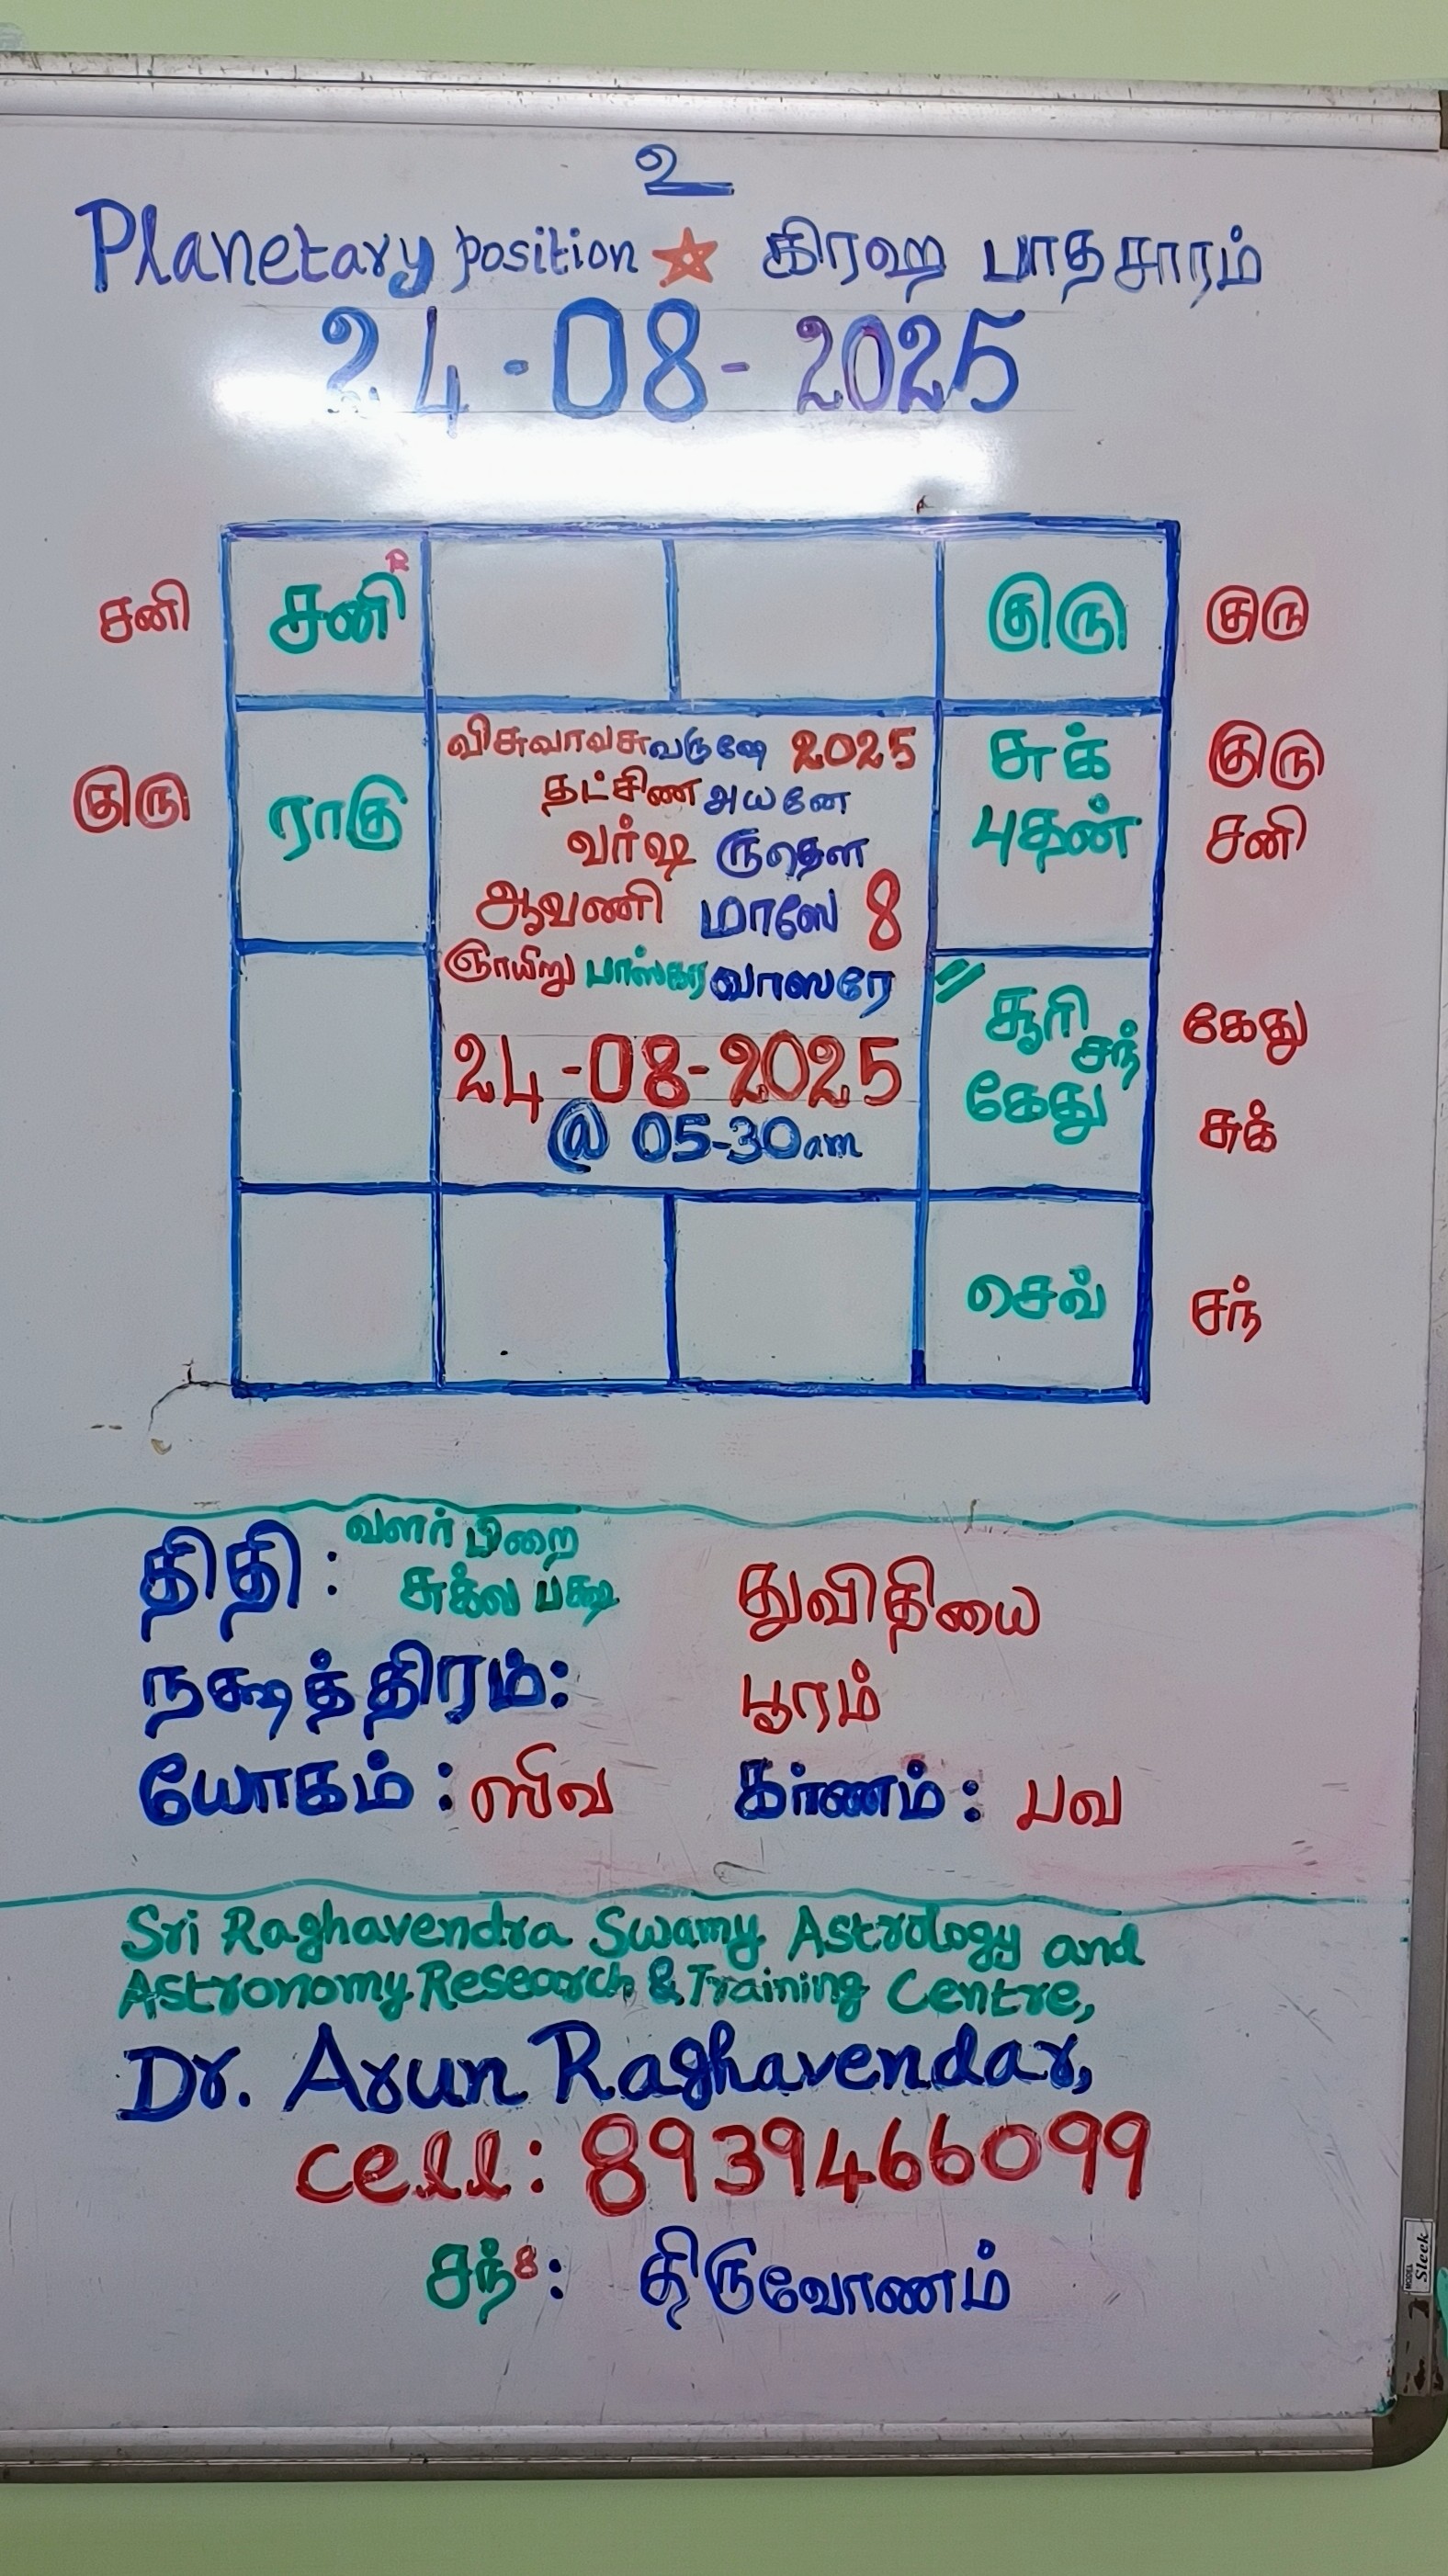 உ
Planetary position கிரஹ பாதசாரம்
24-08-2025
சனி
சனி R
குரு
குரு
குரு
ராகு
விசுவாவசுவருஷே 2025
தட்சிண அயனே
வர்ஷ ருதௌ
ஆவணி மாஸே 8
ஞாயிறு பாஸ்கர வாஸரே
24-08-2025
@ 05-30am
சுக்
புதன்
குரு
சனி
சூரி
சந்
கேது
கேது
சுக்
செவ்
சந்
திதி : வளர் பிறை
சுக்ல பக்ஷ துவிதியை
நக்ஷத்திரம்: பூரம்
யோகம் : ஸிவ கர்ணம் : பவ
Sri Raghavendra Swamy Astrology and
Astronomy Research & Training Centre,
Dr. Arun Raghavendar,
cell: 8939466099
சந்8: திருவோணம்
MODEL Sleek